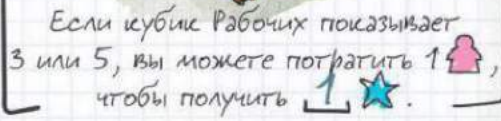 Если кубик Рабочих показывает
3 или 5, вы можете потратить 1 ,
чтобы получить 1 .